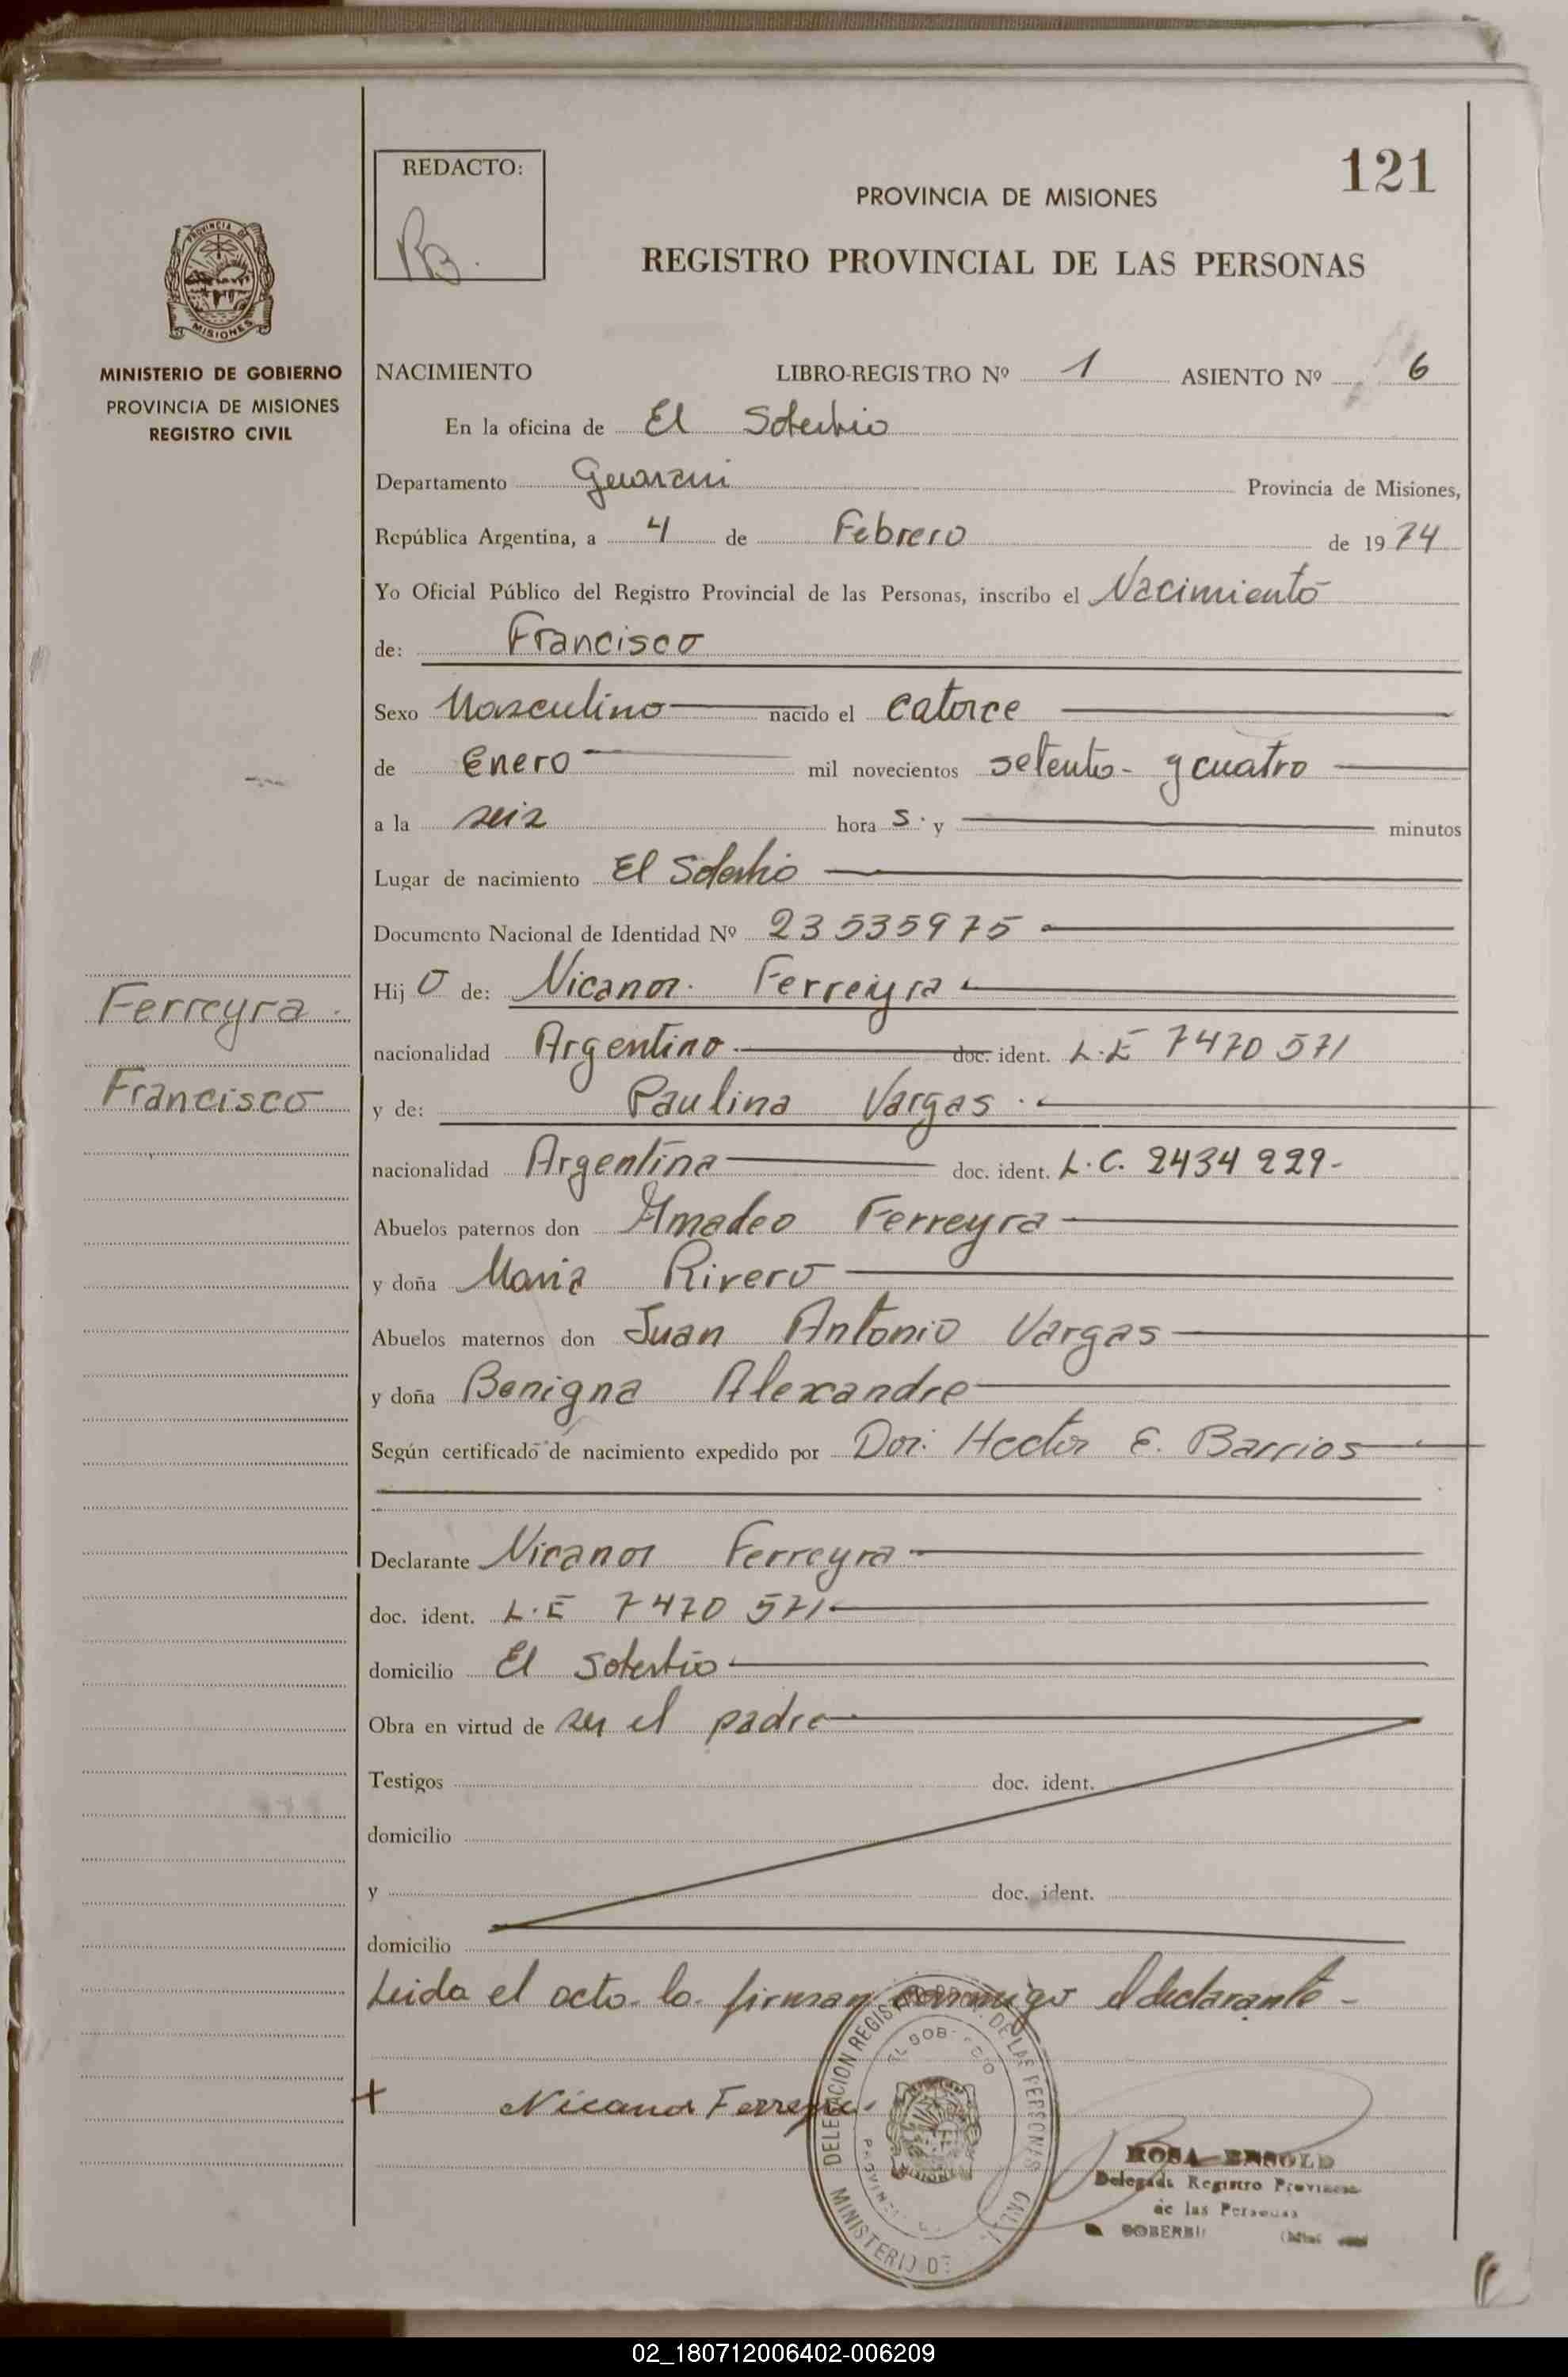 121
REDACTO:
PROVINCIA DE MISIONES
REGISTRO PROVINCIAL DE LAS PERSONAS
PROVINCIA DE
MISIONES
MINISTERIO DE GOBIERNO
PROVINCIA DE MISIONES
REGISTRO CIVIL
NACIMIENTO LIBRO-REGISTRO Nº 1 ASIENTO Nº 6
En la oficina de El Soberbio
Departamento Guarani Provincia de Misiones,
República Argentina, a 4 de Febrero de 1974
Yo Oficial Público del Registro Provincial de las Personas, inscribo el Nacimiento
de: Francisco
Sexo Masculino nacido el catorce
de Enero mil novecientos setenta y cuatro
a la seis hora s. y minutos
Lugar de nacimiento El Soberbio
Documento Nacional de Identidad Nº 23 535975
Hij o de: Nicanor Ferreyra
nacionalidad Argentino doc. ident. L.E 7470 571
y de: Paulina Vargas
nacionalidad Argentina doc. ident. L.C. 2434 229-
Abuelos paternos don Amadeo Ferreyra
y doña Maria Rivero
Abuelos maternos don Juan Antonio Vargas
y doña Benigna Alexandre
Según certificado de nacimiento expedido por Dor. Hector E. Barrios
Declarante Nicanor Ferreyra
doc. ident. L.E 7470 571
domicilio El Soberbio
Obra en virtud de ser el padre
Testigos doc. ident.
domicilio
y doc. ident.
domicilio
Leida el acta la firman conmigo el declarante -
Ferreyra
Francisco
Nicanor Ferreyra
DELEGACION REGISTRO DE LAS PERSONAS
MINISTERIO DE
ROSA
Delegada Registro Provincial
de las Personas
SOBERBIO
02_180712006402-006209